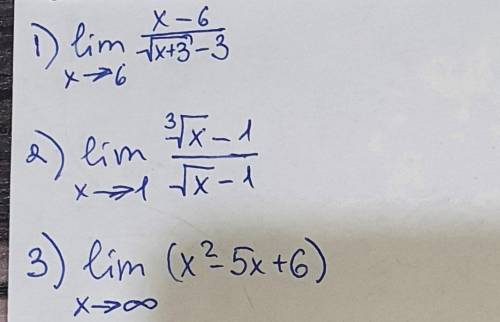 1) lim x→6 (x-6)/(√(x+3)-3)
2) lim x→1 (∛x-1)/(√x-1)
3) lim x→∞ (x²-5x+6)